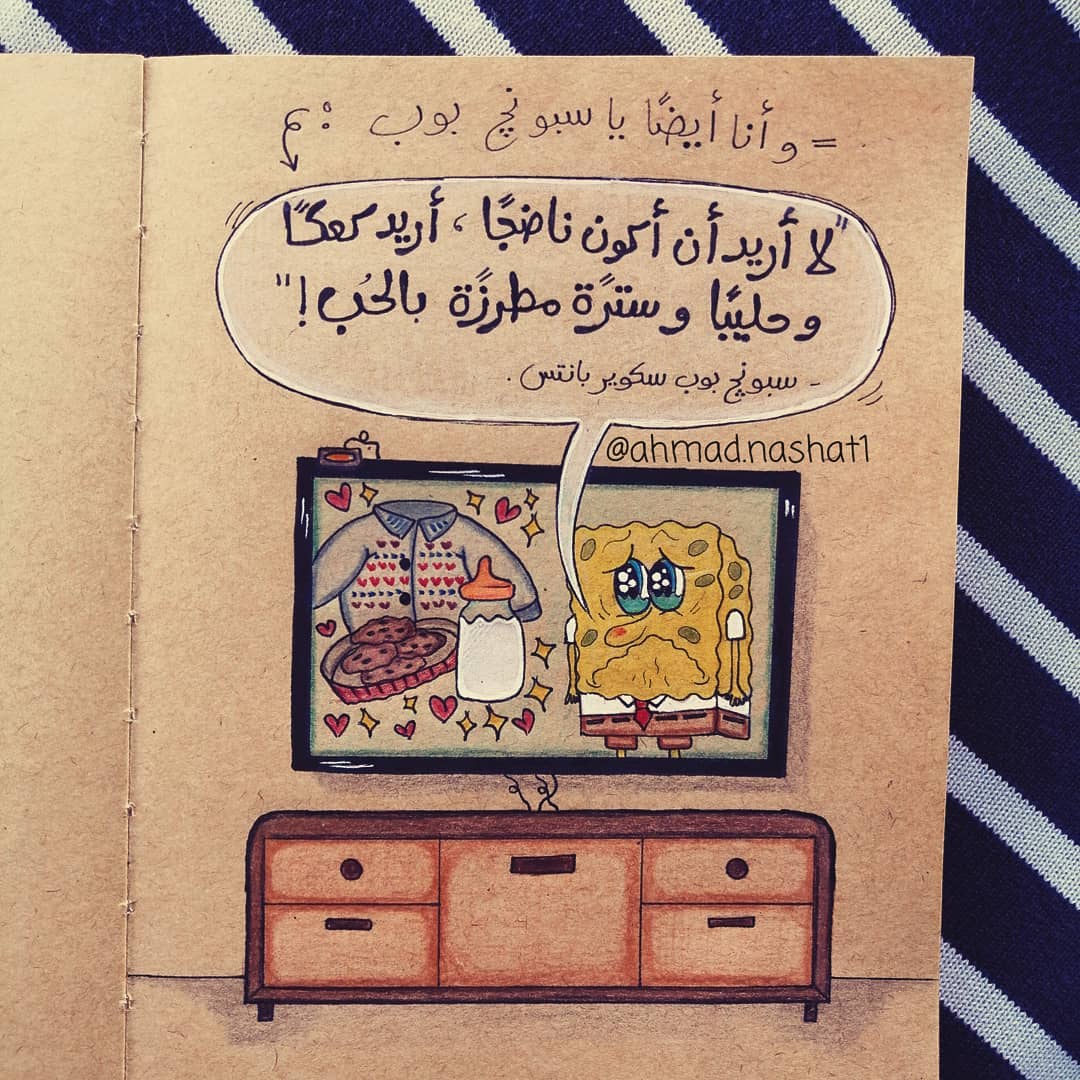 = و أنا أيضًا يا سبونچ بوب :
"لا أريد أن أكون ناضجًا ، أريد كعكًا
و حليبًا و سترًة مطرزًة بالحُب ! "
- سبونچ بوب سكوير بانتس .
@ahmad.nashat1